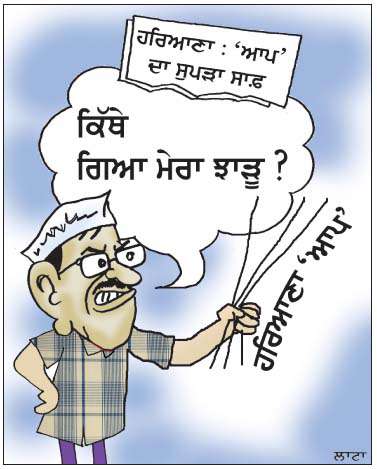 ਹਰਿਆਣਾ : ‘ਆਪ’
ਦਾ ਸੂਪੜਾ ਸਾਫ਼
ਕਿੱਥੇ
ਗਿਆ ਮੇਰਾ ਝਾੜੂ ?
ਹਰਿਆਣਾ ‘ਆਪ’
ਲਾਟਾ